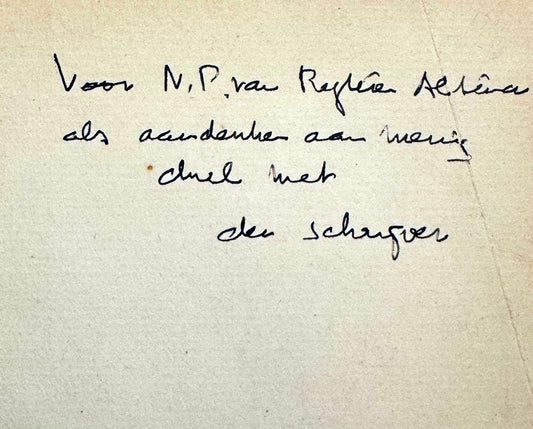 Voor N.P. van Regteren Altena
als aandenken aan menig
duel met
den schrijver